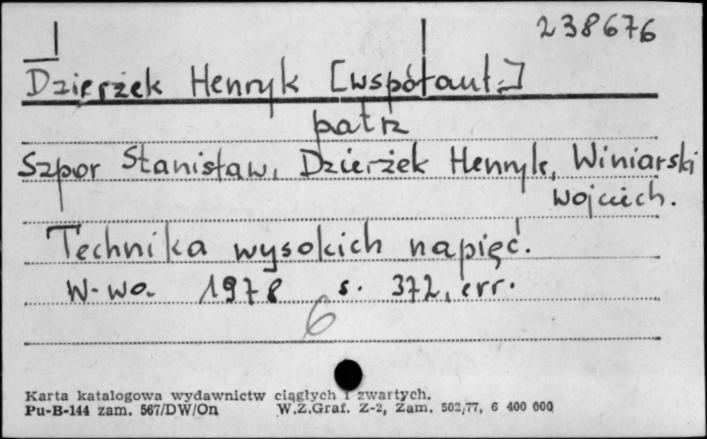 238676
Dzierżek Henryk [współaut.]
patrz
Szpor Stanisław, Dzierżek Henryk, Winiarski
Wojciech.
Technika wysokich napięć.
W-wa 1978 s. 372, err.
6
Karta katalogowa wydawnictw ciągłych i zwartych.
Pu-B-144 zam. 567/DW/On W.Z.Graf. Z-2, Zam. 502/77, 6 400 000